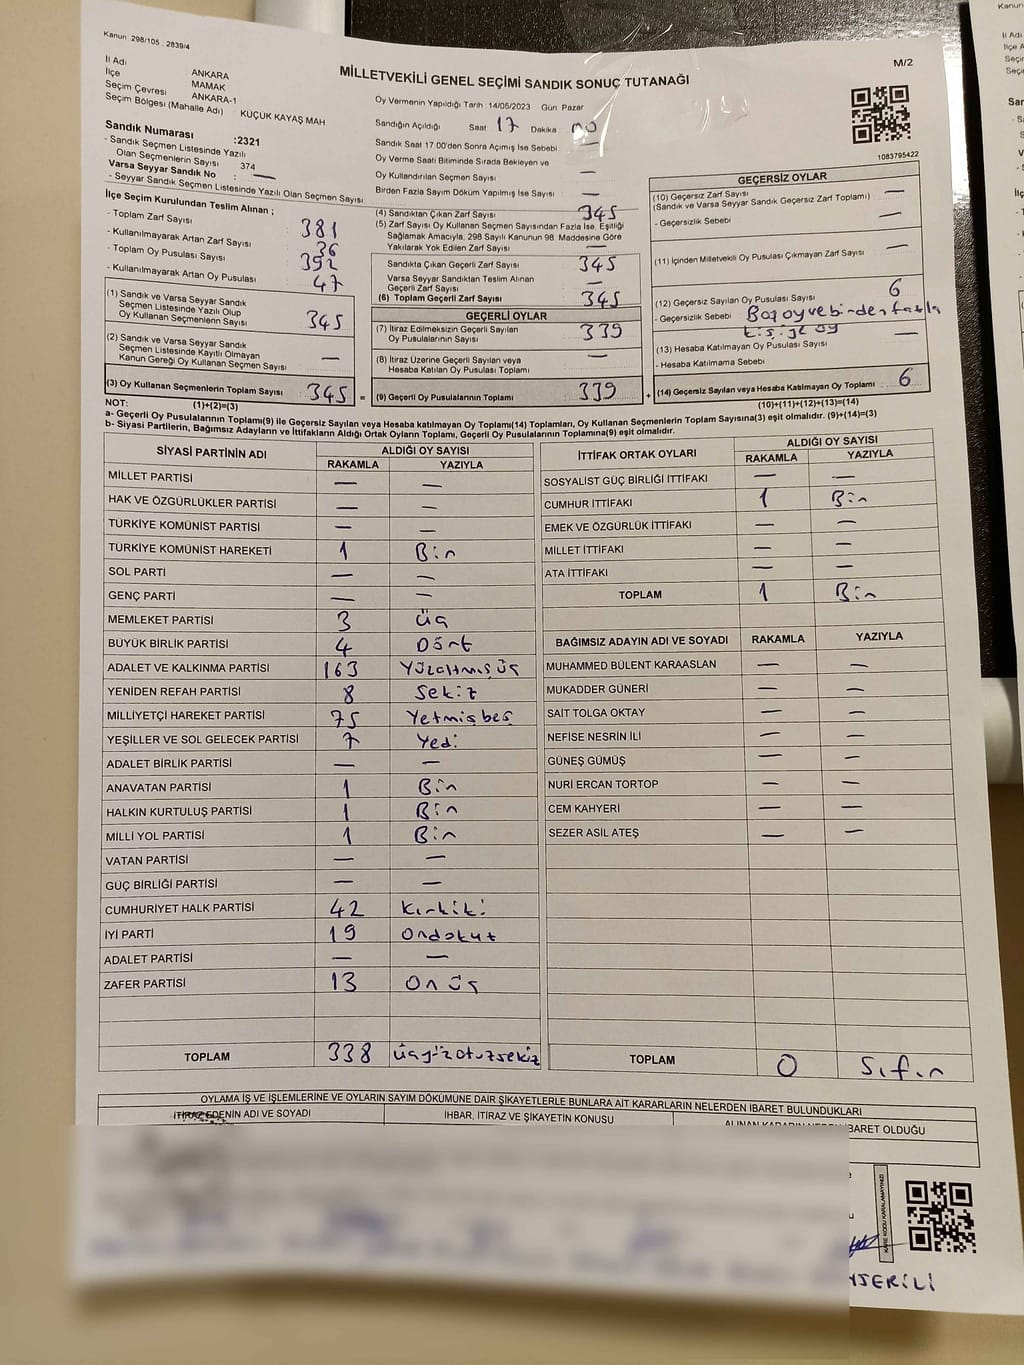 Kanun. 298/105 . 2839/4
M/2
MİLLETVEKİLİ GENEL SEÇİMİ SANDIK SONUÇ TUTANAĞI
İl Adı ANKARA
İlçe MAMAK
Seçim Çevresi ANKARA-1
Seçim Bölgesi (Mahalle Adı) KÜÇÜK KAYAŞ MAH
Sandık Numarası :2321
- Sandık Seçmen Listesinde Yazılı
Olan Seçmenlerin Sayısı 374
Varsa Seyyar Sandık No : —
- Seyyar Sandık Seçmen Listesinde Yazılı Olan Seçmen Sayısı
Oy Vermenin Yapıldığı Tarih :14/05/2023 Gün Pazar
Sandığın Açıldığı Saat 17 Dakika 00
Sandık Saat 17.00'den Sonra Açımış İse Sebebi —
Oy Verme Saati Bitiminde Sırada Bekleyen ve
Oy Kullandırılan Seçmen Sayısı —
Birden Fazla Sayım Döküm Yapılmış İse Sayısı —
1083795422
İlçe Seçim Kurulundan Teslim Alınan ;
- Toplam Zarf Sayısı 381
- Kullanılmayarak Artan Zarf Sayısı 36
- Toplam Oy Pusulası Sayısı 392
- Kullanılmayarak Artan Oy Pusulası 47
(1) Sandık ve Varsa Seyyar Sandık
Seçmen Listesinde Yazılı Olup
Oy Kullanan Seçmenlerin Sayısı 345
(2) Sandık ve Varsa Seyyar Sandık
Seçmen Listesinde Kayıtlı Olmayan
Kanun Gereği Oy Kullanan Seçmen Sayısı —
(3) Oy Kullanan Seçmenlerin Toplam Sayısı 345 =
(1)+(2)=(3)
(4) Sandıktan Çıkan Zarf Sayısı 345
(5) Zarf Sayısı Oy Kullanan Seçmen Sayısından Fazla İse, Eşitliği
Sağlamak Amacıyla, 298 Sayılı Kanunun 98. Maddesine Göre
Yakılarak Yok Edilen Zarf Sayısı —
Sandıkta Çıkan Geçerli Zarf Sayısı 345
Varsa Seyyar Sandıktan Teslim Alınan
Geçerli Zarf Sayısı —
(6) Toplam Geçerli Zarf Sayısı 345
GEÇERLİ OYLAR
(7) İtiraz Edilmeksizin Geçerli Sayılan
Oy Pusulalarının Sayısı 339
(8) İtiraz Üzerine Geçerli Sayılan veya
Hesaba Katılan Oy Pusulası Toplamı —
(9) Geçerli Oy Pusulalarının Toplamı 339 +
GEÇERSİZ OYLAR
(10) Geçersiz Zarf Sayısı —
(Sandık ve Varsa Seyyar Sandık Geçersiz Zarf Toplamı)
- Geçersizlik Sebebi —
(11) İçinden Milletvekili Oy Pusulası Çıkmayan Zarf Sayısı —
(12) Geçersiz Sayılan Oy Pusulası Sayısı 6
- Geçersizlik Sebebi Boş oy ve birden fazla
kişiye oy
(13) Hesaba Katılmayan Oy Pusulası Sayısı —
- Hesaba Katılmama Sebebi
(14) Geçersiz Sayılan veya Hesaba Katılmayan Oy Toplamı 6
(10)+(11)+(12)+(13)=(14)
NOT:
a- Geçerli Oy Pusulalarının Toplamı(9) ile Geçersiz Sayılan veya Hesaba katılmayan Oy Toplamı(14) Toplamları, Oy Kullanan Seçmenlerin Toplam Sayısına(3) eşit olmalıdır. (9)+(14)=(3)
b- Siyasi Partilerin, Bağımsız Adayların ve İttifakların Aldığı Ortak Oyların Toplamı, Geçerli Oy Pusulalarının Toplamına(9) eşit olmalıdır.
SİYASİ PARTİNİN ADI ALDIĞI OY SAYISI
RAKAMLA YAZIYLA
MİLLET PARTİSİ — —
HAK VE ÖZGÜRLÜKLER PARTİSİ — —
TÜRKİYE KOMÜNİST PARTİSİ — —
TÜRKİYE KOMÜNİST HAREKETİ 1 Bir
SOL PARTİ — —
GENÇ PARTİ — —
MEMLEKET PARTİSİ 3 Üç
BÜYÜK BİRLİK PARTİSİ 4 Dört
ADALET VE KALKINMA PARTİSİ 163 Yüzaltmışüç
YENİDEN REFAH PARTİSİ 8 Sekiz
MİLLİYETÇİ HAREKET PARTİSİ 75 Yetmişbeş
YEŞİLLER VE SOL GELECEK PARTİSİ 7 Yedi
ADALET BİRLİK PARTİSİ — —
ANAVATAN PARTİSİ 1 Bir
HALKIN KURTULUŞ PARTİSİ 1 Bir
MİLLİ YOL PARTİSİ 1 Bir
VATAN PARTİSİ — —
GÜÇ BİRLİĞİ PARTİSİ — —
CUMHURİYET HALK PARTİSİ 42 Kırkiki
İYİ PARTİ 19 Ondokuz
ADALET PARTİSİ — —
ZAFER PARTİSİ 13 Onüç
TOPLAM 338 Üçyüzotuzsekiz
İTTİFAK ORTAK OYLARI ALDIĞI OY SAYISI
RAKAMLA YAZIYLA
SOSYALİST GÜÇ BİRLİĞİ İTTİFAKI — —
CUMHUR İTTİFAKI 1 Bir
EMEK VE ÖZGÜRLÜK İTTİFAKI — —
MİLLET İTTİFAKI — —
ATA İTTİFAKI — —
TOPLAM 1 Bir
BAĞIMSIZ ADAYIN ADI VE SOYADI RAKAMLA YAZIYLA
MUHAMMED BÜLENT KARAASLAN — —
MUKADDER GÜNERİ — —
SAİT TOLGA OKTAY — —
NEFİSE NESRİN İLİ — —
GÜNEŞ GÜMÜŞ — —
NURİ ERCAN TORTOP — —
CEM KAHYERİ — —
SEZER ASIL ATEŞ — —
TOPLAM 0 Sıfır
OYLAMA İŞ VE İŞLEMLERİNE VE OYLARIN SAYIM DÖKÜMÜNE DAİR ŞİKAYETLERLE BUNLARA AİT KARARLARIN NELERDEN İBARET BULUNDUKLARI
İTİRAZ EDENİN ADI VE SOYADI İHBAR, İTİRAZ VE ŞİKAYETİN KONUSU ALINAN KARARIN NEDEN İBARET OLDUĞU
KARE KODU KARALAMAYINIZ!